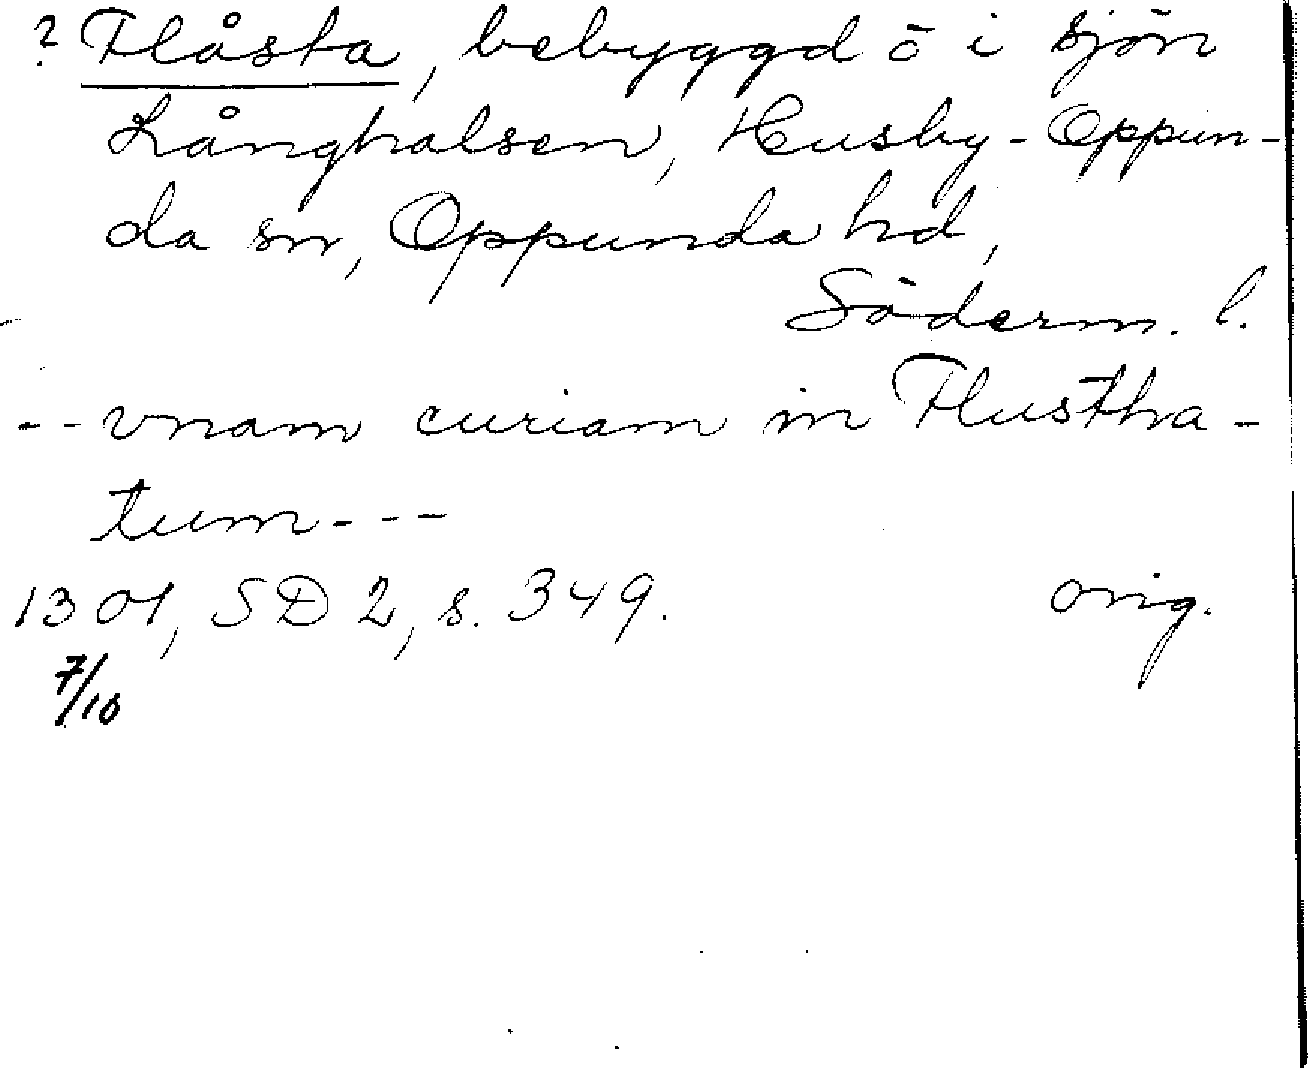 ? Flåsta, bebyggd ö i sjön
Långhalsen, Husby-Oppun-
da sn, Oppunda hd,
Söderm. l.
-- vnam curiam in Flustha-
tum---
1301, SD 2, s. 349. orig.
7/10